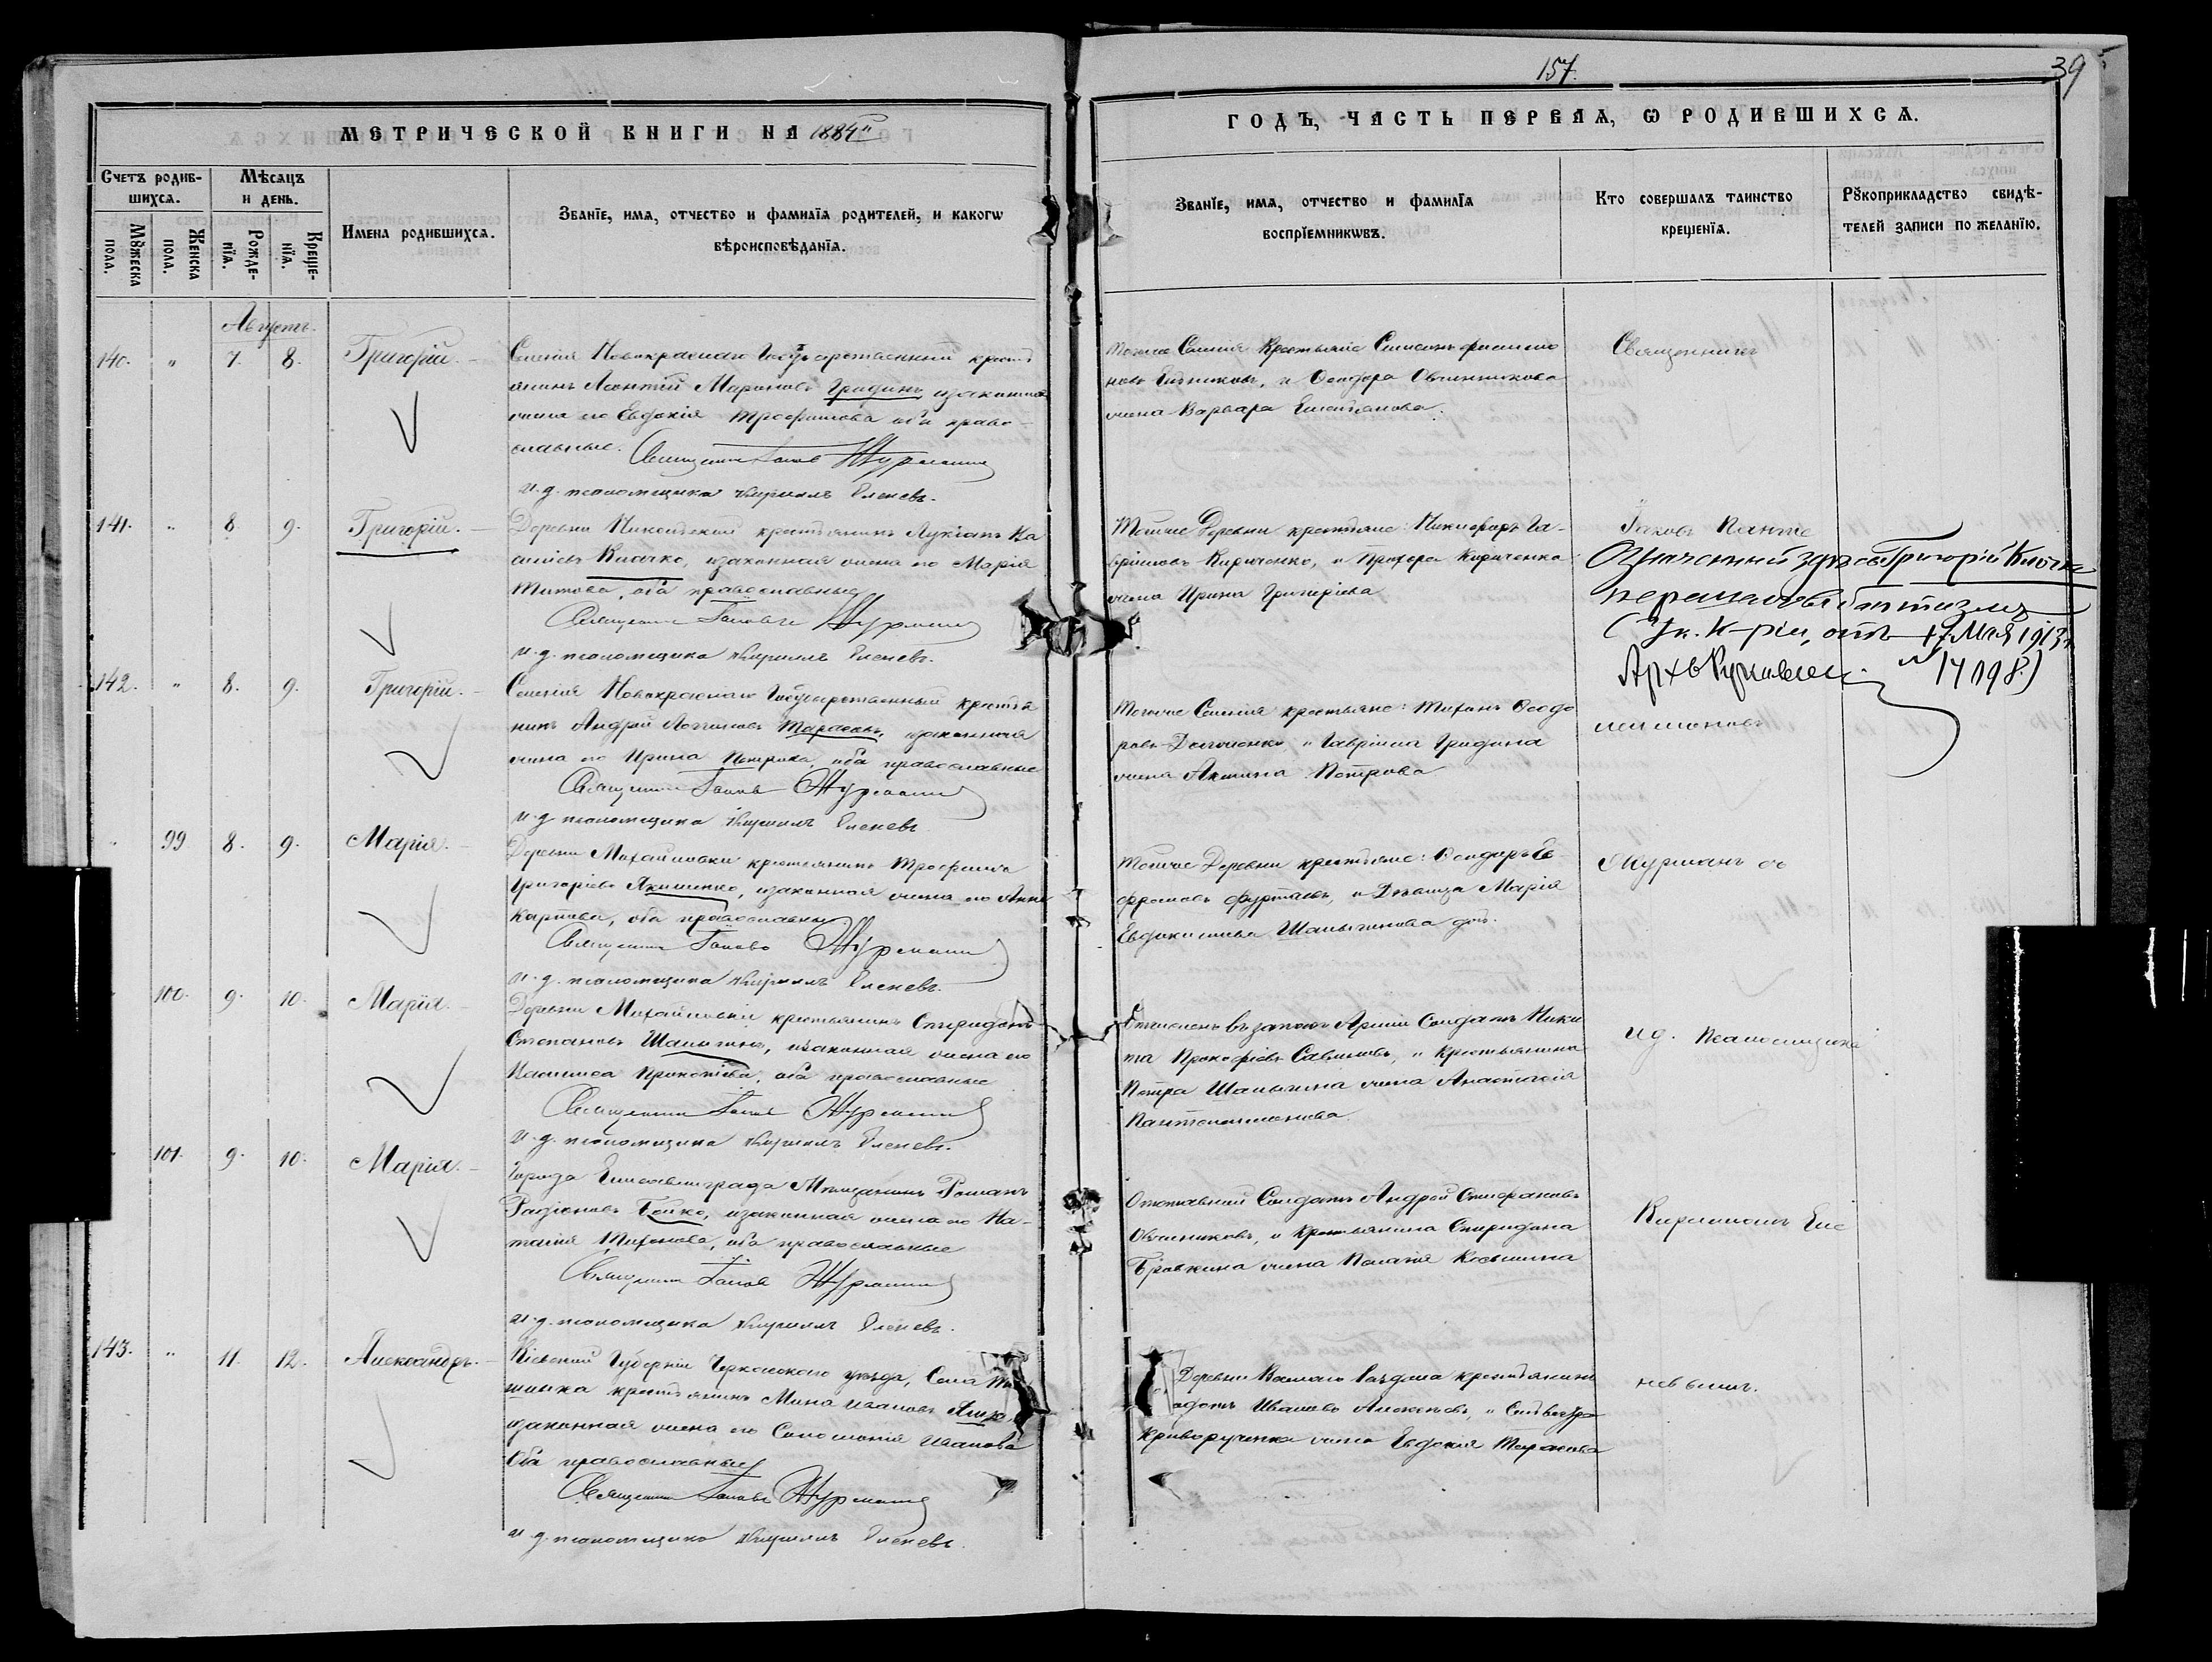 157.
39
МЕТРИЧЕСКОЙ КНИГИ НА 1884й
ГОДЪ, ЧАСТЬ ПЕРВАЯ, Ѡ РОДИВШИХСЯ.
Счетъ родив-
шихся.
Мѣсяцъ
и день.
Мꙋжеска
пола.
Женска
пола.
Рожде-
нїя.
Креще-
нїя.
Имена родившихся.
Званїе, имя, отчество и фамилїя родителей, и какогѡ
вѣроисповѣданїя.
Званїе, имя, отчество и фамилїя
воспрїемникѡвъ.
Кто совершалъ таинство
крещенїя.
Рꙋкоприкладство свидѣ-
телей записи по желанїю.
Августъ.
140. " 7. 8. Григорій.
Селенія Новокраснаго Государственный крестья
янинъ Леонтій Мароновъ Гридинъ, изаконная
жена его Евдокія Трофимова оба право-
славные.
Священникъ Іаковъ Журманъ
и. д. псаломщика Кириллъ Еленевъ.
Тогоже Селенія Крестьяне
и Ѳеодора Овчинникова
жена Варвара Емельянова.
Священникъ
141. " 8. 9. Григорій.
Деревни крестьянинъ Лукіанъ
Клочко, изаконная жена его Марія
Титова, оба православные
Священникъ Іаковъ Журманъ
и. д. псаломщика Кириллъ Еленевъ.
Тойже Деревни крестьяне: Никифоръ Га-
вріиловъ Кириченко, и Прохора Кириченка
жена Ирина Григоріева
Іаковъ Панте
Означенный здѣсь Григорій Клочко
перешелъ въ баптизмъ
(Ук. К-ріи, отъ 17 Мая 1913 г.
№ 14198.)
142. " 8. 9. Григорій.
Селенія Новокраснаго Государственный крестья
нинъ Андрей Логгиновъ Тарасовъ, изаконная
жена его Ирина Петрова, оба православные
Священникъ Іаковъ Журманъ
и. д. псаломщика Кириллъ Еленевъ
Тогоже Селенія крестьяне: Тихонъ Ѳеодо
ровъ и Гавріила Гридина
жена Акилина Петрова
леимоновъ
99 8. 9. Марія.
Деревни Михайловки крестьянинъ Трофимъ
Григоріевъ Якименко, изаконная жена его Анна
Карпова, оба православны
Священникъ Іаковъ Журманъ
и. д. псаломщика Кириллъ Еленевъ.
Тойже Деревни крестьяне: Ѳеодоръ Е
фремовъ и Дѣвица Марія
Евдокимова Шалыгинова дочь.
Журманъ съ
100. 9. 10. Марія.
Деревни Михайловки крестьянинъ Спиридонъ
Степановъ Шалыгинъ, изаконная жена его
Прокопіева, оба православные
Священникъ Іаковъ Журманъ
и. д. псаломщика Кириллъ Еленевъ.
Отчисленъ въ запасъ Арміи Солдатъ Ники
та Прокофіевъ Савиновъ, и Крестьянина
Петра Шалыгина жена Анастасія
Пантелеимонова
ид. Псаломщика
101. 9. 10. Марія.
Города Елисаветграда Мѣщанинъ Романъ
Радіоновъ Бойко, изаконная жена его На-
талія Тихонова, оба православные
Священникъ Іаковъ Журманъ
и. д. псаломщика Кириллъ Еленевъ.
Отставный Солдатъ Андрей Стефановъ
Овчинниковъ, и Крестьянина Спиридона
Бровкина жена Пелагія Косьмина
Кирилломъ Еле
143. " 11. 12. Александръ.
Кіевской Губерніи Черкасскаго уѣзда, Села
крестьянинъ Мина Ивановъ
изаконная жена его Соломонія Иванова
Оба православные
Священникъ Іаковъ Журманъ
и. д. псаломщика Кириллъ Еленевъ.
Деревни крестьянинъ
Ивановъ Алексѣевъ, и Сильвестра
Криворученка жена Евдокія Тарасова
невымъ.